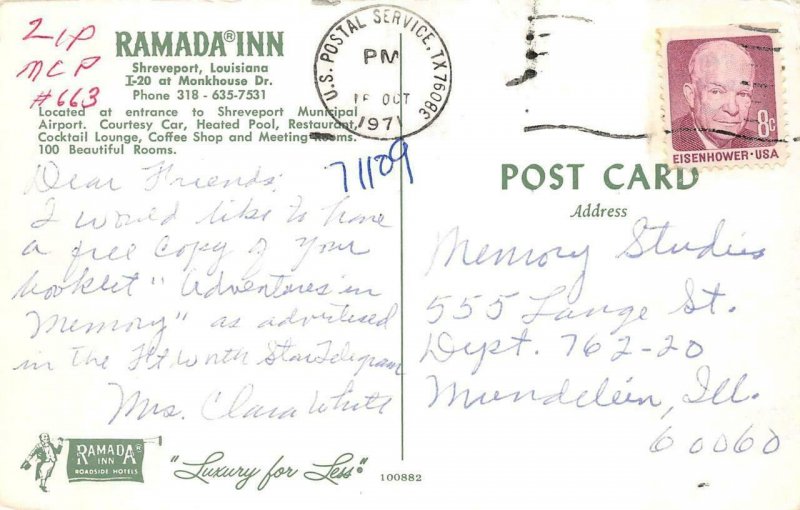 ZIP
MCP
#663
RAMADA® INN
Shreveport, Louisiana
I-20 at Monkhouse Dr.
Phone 318 - 635-7531
Located at entrance to Shreveport Municipal
Airport. Courtesy Car, Heated Pool, Restaurant,
Cocktail Lounge, Coffee Shop and Meeting Rooms.
100 Beautiful Rooms.
U.S. POSTAL SERVICE, TX 76080
PM
OCT
1971
8c
EISENHOWER·USA
71109
Dear Friends;
I would like to have
a free copy of your
booklet "Adventures in
Memory" as advertised
in the Ft Worth Star Telegram
Mrs. Clara White
POST CARD
Address
Memory Studies
555 Lange St.
Dept. 762-20
Mundelein, Ill.
60060
RAMADA®
INN
ROADSIDE HOTELS
"Luxury for Less"
100882